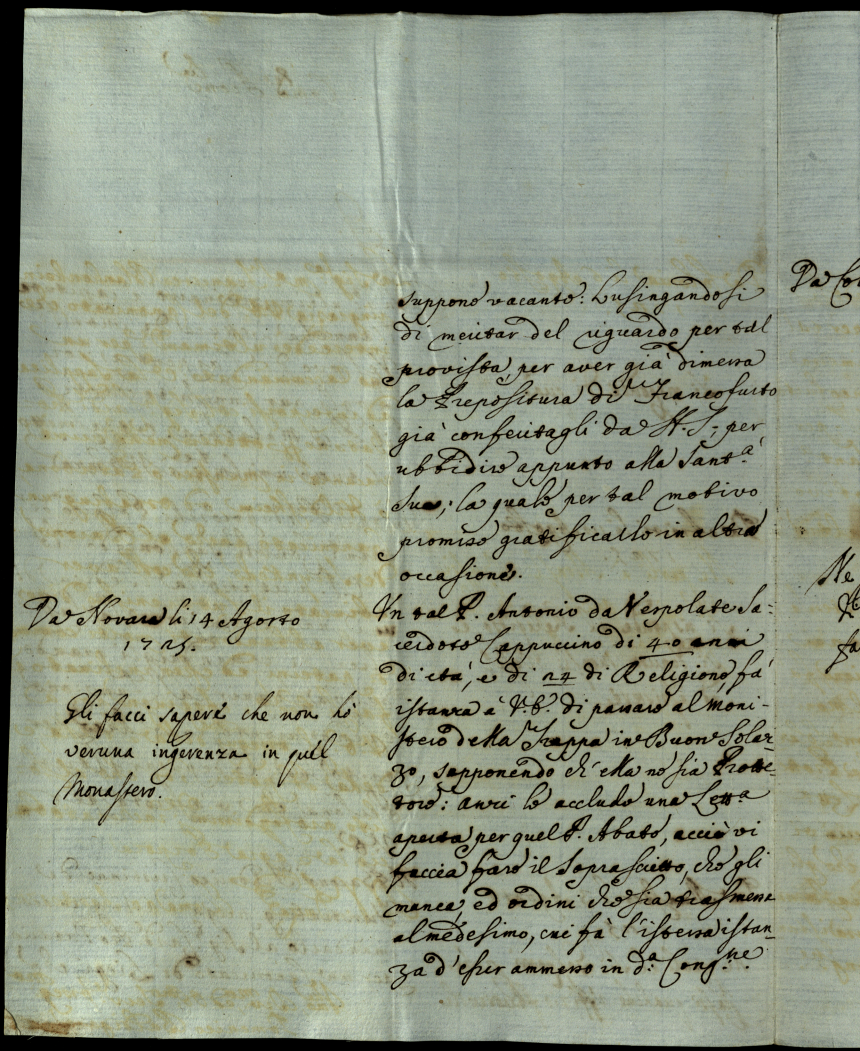 suppone vacante: Lusingandosi
di meritar del riguardo per tal
provista, per aver già dimessa
la Prepositura di Francofurto
già conferitagli da N. S., per
ubbidire appunto alla Sant.à
Sua; la quale per tal motivo
promise gratificarlo in altra
occasione.
Da Novara li 14 Agosto
1725.
Gli facci sapere che non hò
veruna ingerenza in quel
Monastero.
Un tal P. Antonio da Vespolate Sa:
cerdote Cappuccino di 40 anni
di età, e di 24 di Religione, fà
istanza à V.E. di passare al Moni:
stero della Trappa in Buon Solaz:
zo, supponendo ch'ella ne sia Protet:
tore: anzi le acclude una Lett.a
aperta per quel P. Abate, acciò vi
faccia fare il Soprascritto, che gli
manca, ed ordini che sia trasmessa
al medesimo, cui fà l'istessa istan:
za d'esser ammesso in d.a Cong.ne
Da
Ne